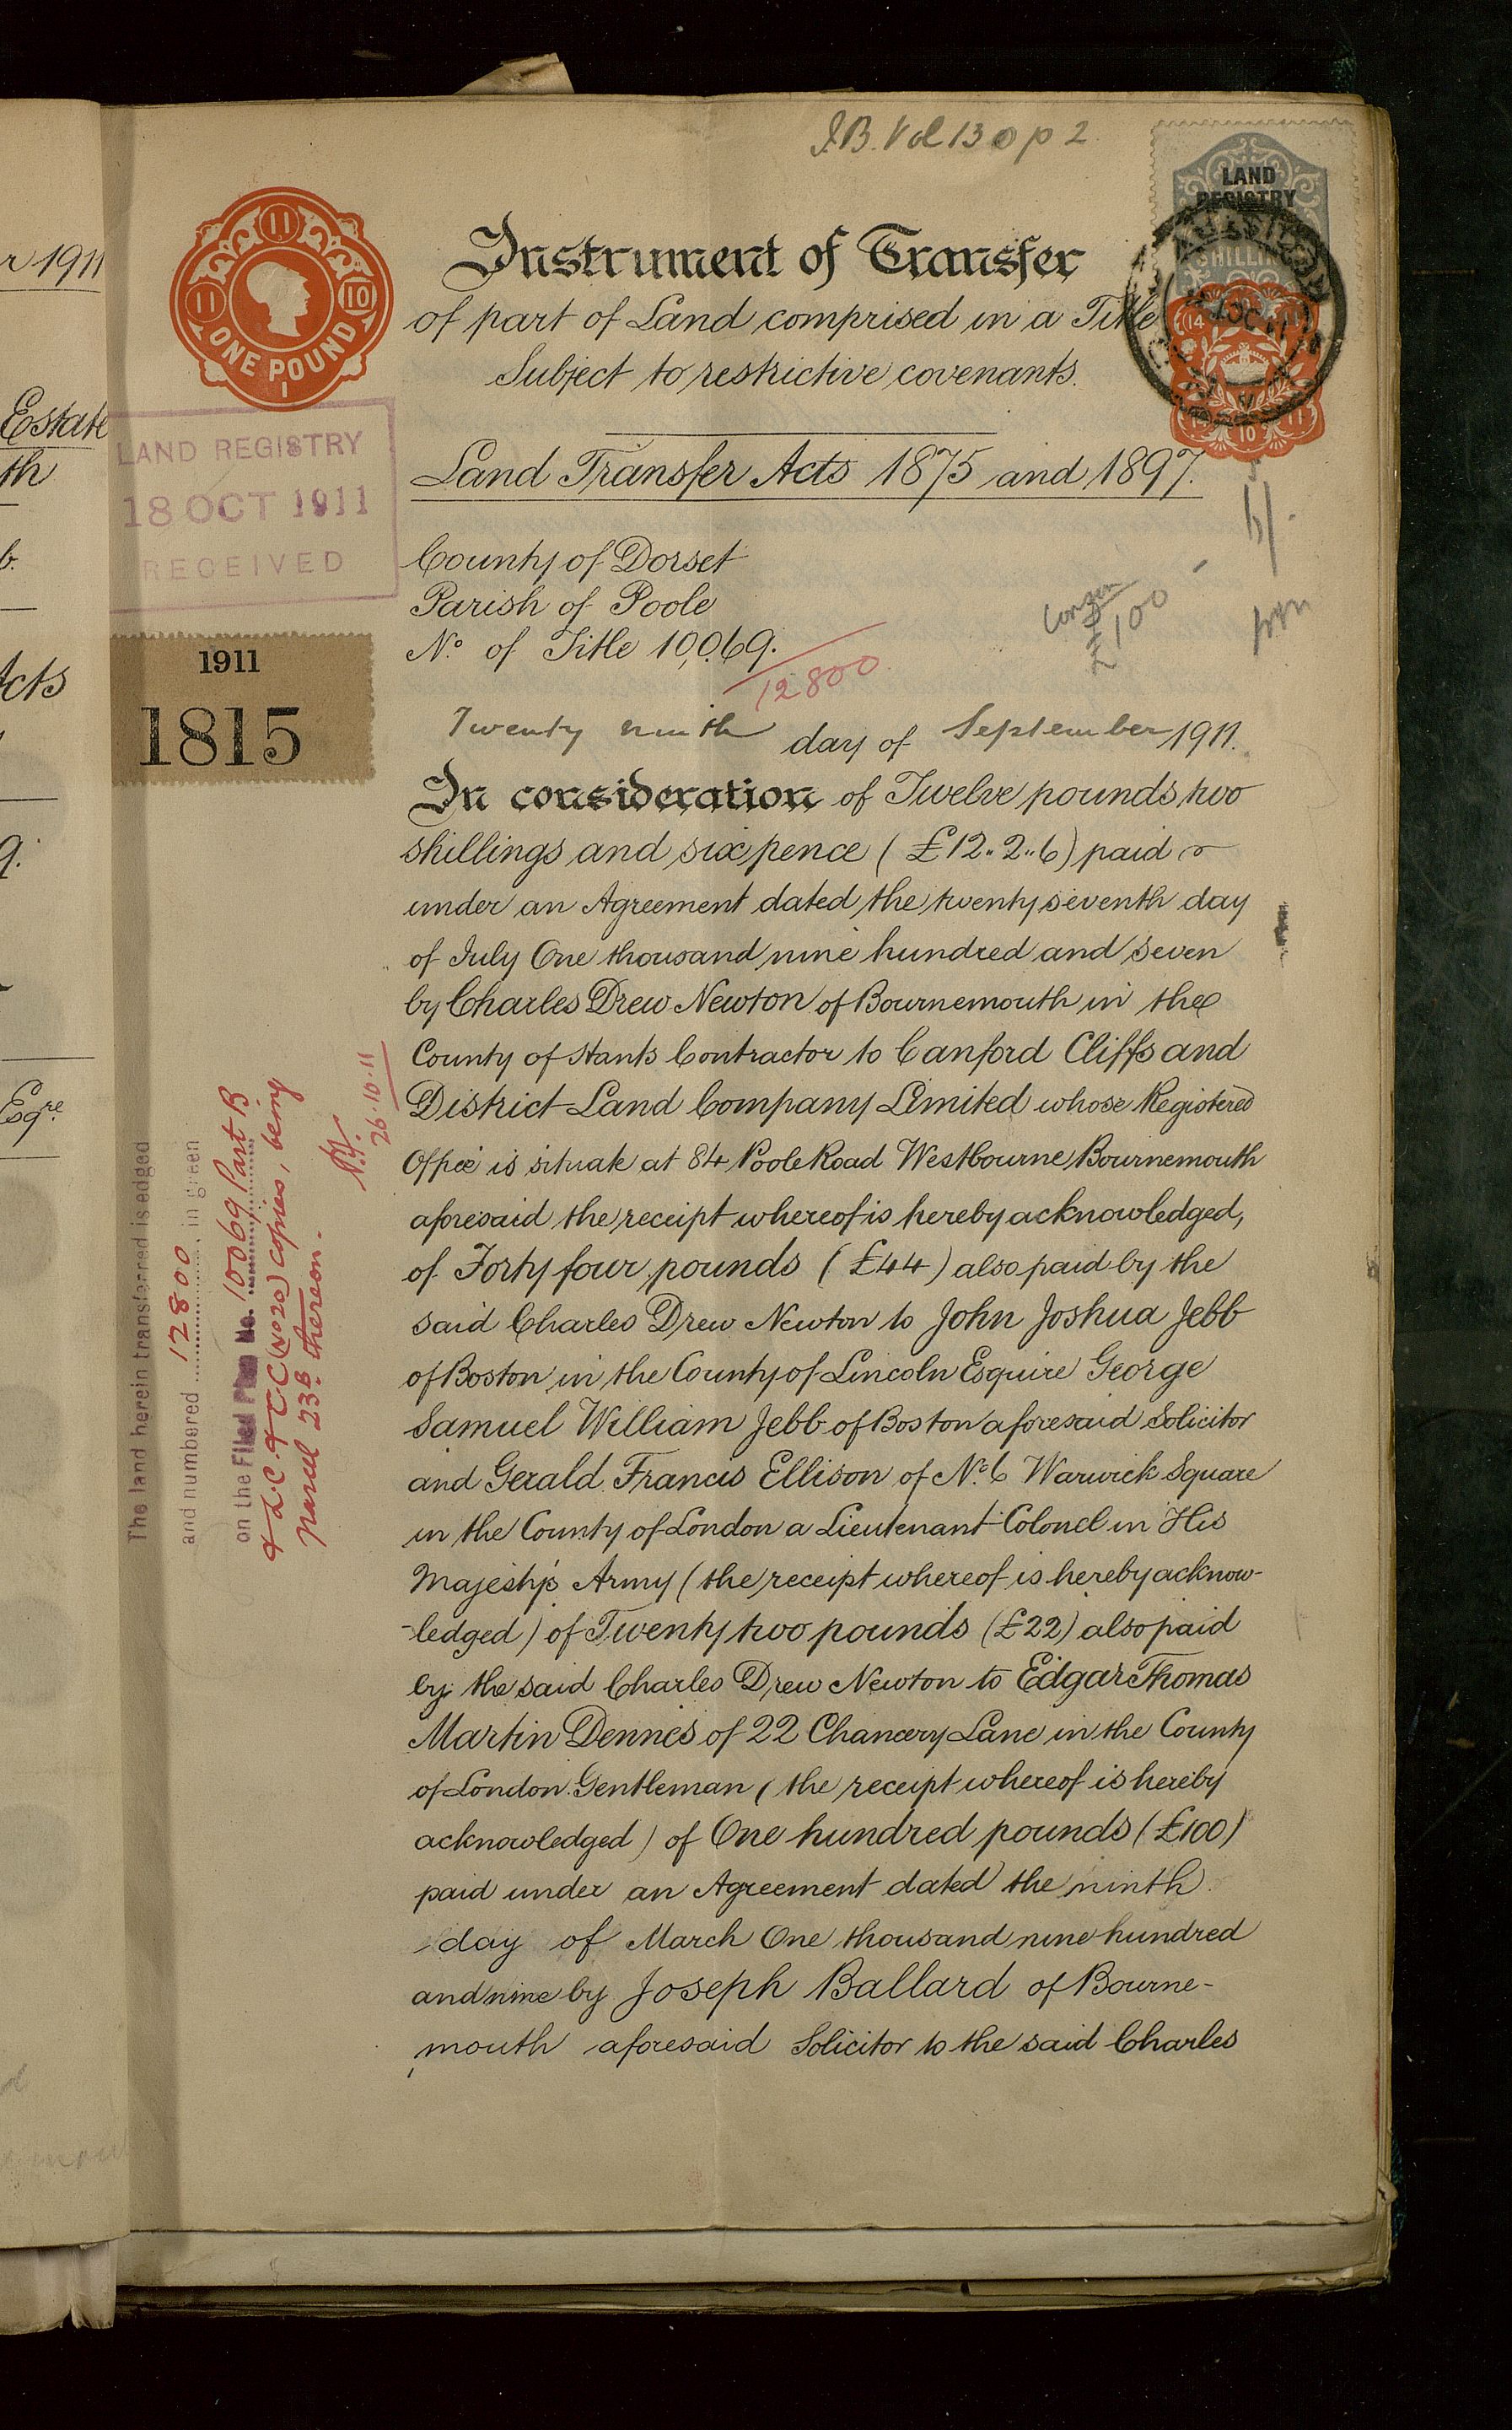 r 1911
Estate
th
b.
Acts
9.
Esqre
I.B. Vol 130 p 2
11
11
10
ONE POUND
1
LAND
REGISTRY
SHILLING
14
11
10
Instrument of Transfer
of part of Land comprised in a Title
Subject to restrictive covenants.
Land Transfer Acts 1875 and 1897.
LAND REGISTRY
18 OCT 1911
RECEIVED
County of Dorset
Parish of Poole
No. of Title 10,069.
12800
£100
1911
1815
Twenty ninth day of September 1911.
In consideration of Twelve pounds two
shillings and sixpence (£12..2..6) paid
under an Agreement dated the twenty seventh day
of July One thousand nine hundred and seven
by Charles Drew Newton of Bournemouth in the
County of Hants Contractor to Canford Cliffs and
District Land Company Limited whose Registered
Office is situate at 84 Poole Road Westbourne Bournemouth
aforesaid the receipt whereof is hereby acknowledged,
of Forty four pounds (£44) also paid by the
said Charles Drew Newton to John Joshua Jebb
of Boston in the County of Lincoln Esquire George
Samuel William Jebb of Boston aforesaid Solicitor
and Gerald Francis Ellison of No. 6 Warwick Square
in the County of London a Lieutenant Colonel in His
Majesty's Army (the receipt whereof is hereby acknow-
-ledged) of Twenty two pounds (£22) also paid
by the said Charles Drew Newton to Edgar Thomas
Martin Dennes of 22 Chancery Lane in the County
of London Gentleman (the receipt whereof is hereby
acknowledged) of One hundred pounds (£100)
paid under an Agreement dated the ninth
day of March One thousand nine hundred
and nine by Joseph Ballard of Bourne-
mouth aforesaid Solicitor to the said Charles
The land herein transferred is edged
and numbered 12800 in green
on the Filed Plan No. 10069 Part B
& L.C. & T.C (No 20) copies, being
Parcel 23B thereon.
26.10.11